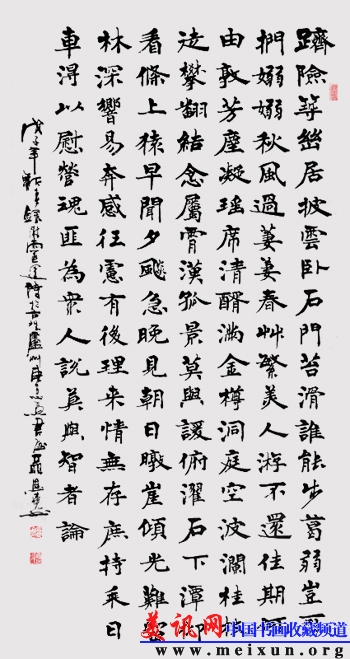 躋險築幽居披雲卧石門苔滑誰能步葛弱豈可
捫嫋嫋秋風過萋萋春艸繁美人游不還佳期何
由敦芳塵凝瑶席清醑滿金樽洞庭空波瀾桂枝
徒攀翻結念屬霄漢孤景莫與諼俯濯石下潭仰
看條上猿早聞夕飈急晚見朝日暾崖傾光難留
林深響易奔感往慮有後理来情無存庶持乘日
車得以慰營魂匪為衆人說冀與智者論
戊子年 錄 靈運詩於
美讯网 中国书画收藏频道
www.meixun.org